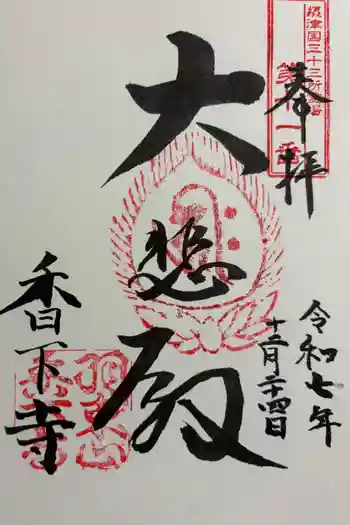 摂津国三十三所霊場
第一番
奉拝
令和七年
十二月二十四日
大悲殿
香下寺